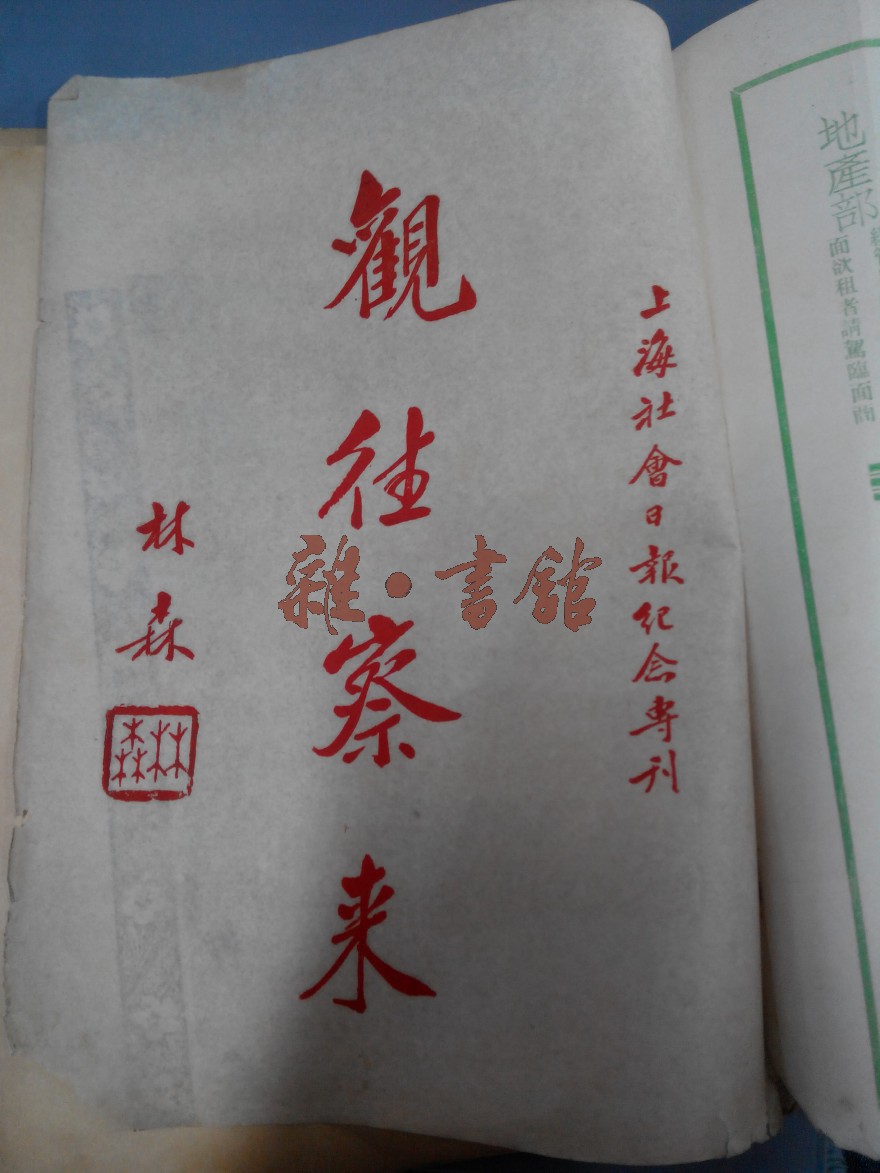 地產部
面欲租者請駕臨面商
上海社會日報紀念專刊
觀往察来
林森
林森
雜·書館